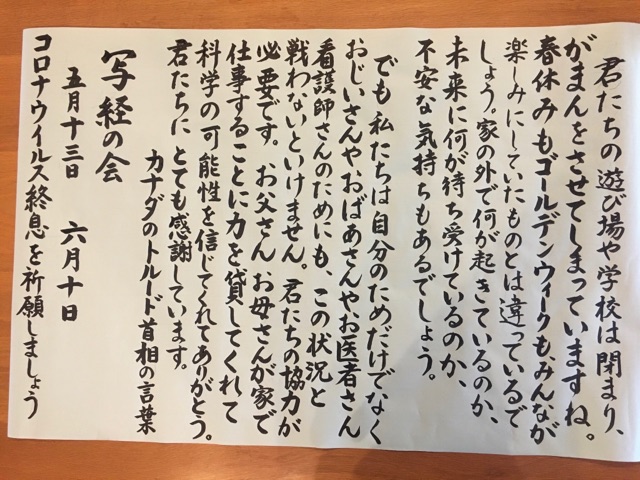 君たちの遊び場や学校は閉まり、
がまんをさせてしまっていますね。
春休みもゴールデンウィークも、みんなが
楽しみにしていたものとは違っているで
しょう。家の外で何が起きているのか、
未来に何が待ち受けているのか、
不安な気持ちもあるでしょう。
でも私たちは自分のためだけでなく
おじいさんや、おばあさんや、お医者さん
看護師さんのためにも、この状況と
戦わないといけません。君たちの協力が
必要です。お父さんお母さんが家で
仕事することに力を貸してくれて
科学の可能性を信じてくれてありがとう。
君たちにとても感謝しています。
カナダのトルード首相の言葉
写経の会
五月十三日 六月十日
コロナウイルス終息を祈願しましょう